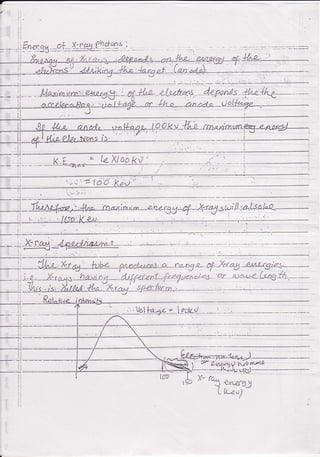 Energy of X-ray Photons:
Energy of X-rays depends on the energy of the
electrons striking the target (anode)
Maximum energy of the electrons depends the the
accelerating voltage or the anode voltage
If the anode voltage 100kV the maximum energy
of the electrons is
K.E max = 1e X 100 kV
= 100 Kev
Therefore, the maximum energy of X-rays will also be
100 Kev
X-ray Spectrum:
The X-ray tube produces a range of X-ray energies
i.e X-rays having different frequencies or wave length.
This is called the X-ray spectrum.
Relative intensity
Voltage =
100
150
X-ray energy
(Kev)